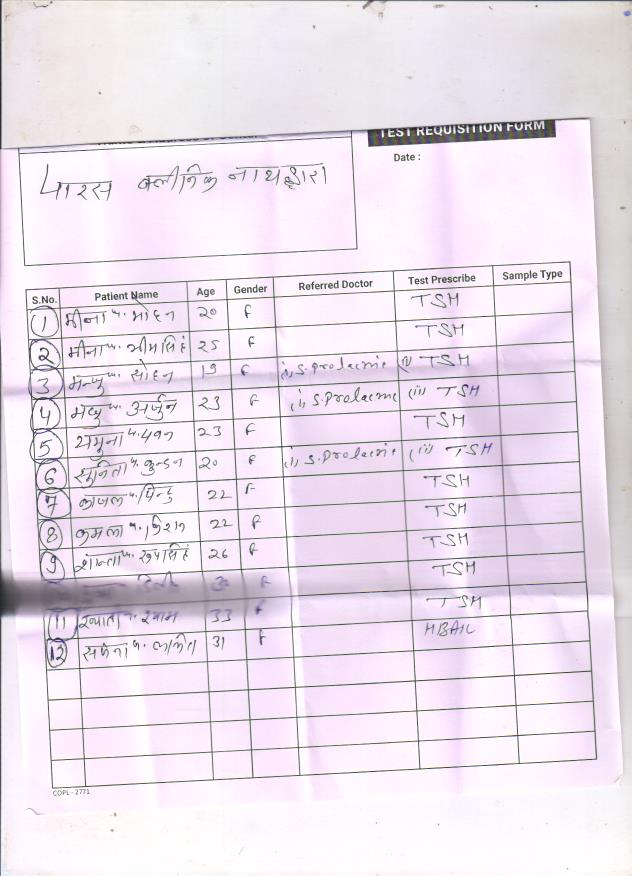 TEST REQUISITION FORM
Date :
पारस क्लीनिक नाथद्वारा
S.No. Patient Name Age Gender Referred Doctor Test Prescribe Sample Type
1 मीना प. मोहन 20 F TSH
2 मीना प. भीमसिंह 25 F TSH
3 मन्जु प. सोहन 19 F (i) S. Prolacine (ii) TSH
4 मधु प. अर्जुन 23 F (i) S. Prolacine (ii) TSH
5 यमुना प. पवन 23 F TSH
6 सुनिता प. कुन्दन 20 F (i) S. Prolacine (ii) TSH
7 काजल प. पिन्टु 22 F TSH
8 कमला प. किशन 22 F TSH
9 शान्ता प. रूपसिंह 26 F TSH
F TSH
11 प. श्याम 33 F TSH
12 प. ललित 31 F HBA1C
COPL - 2771